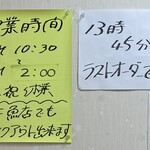 業時(間)
10:30
2:00
祝休
魚店でも
クアらト出来ます
13時
45分
ラストオーダーで